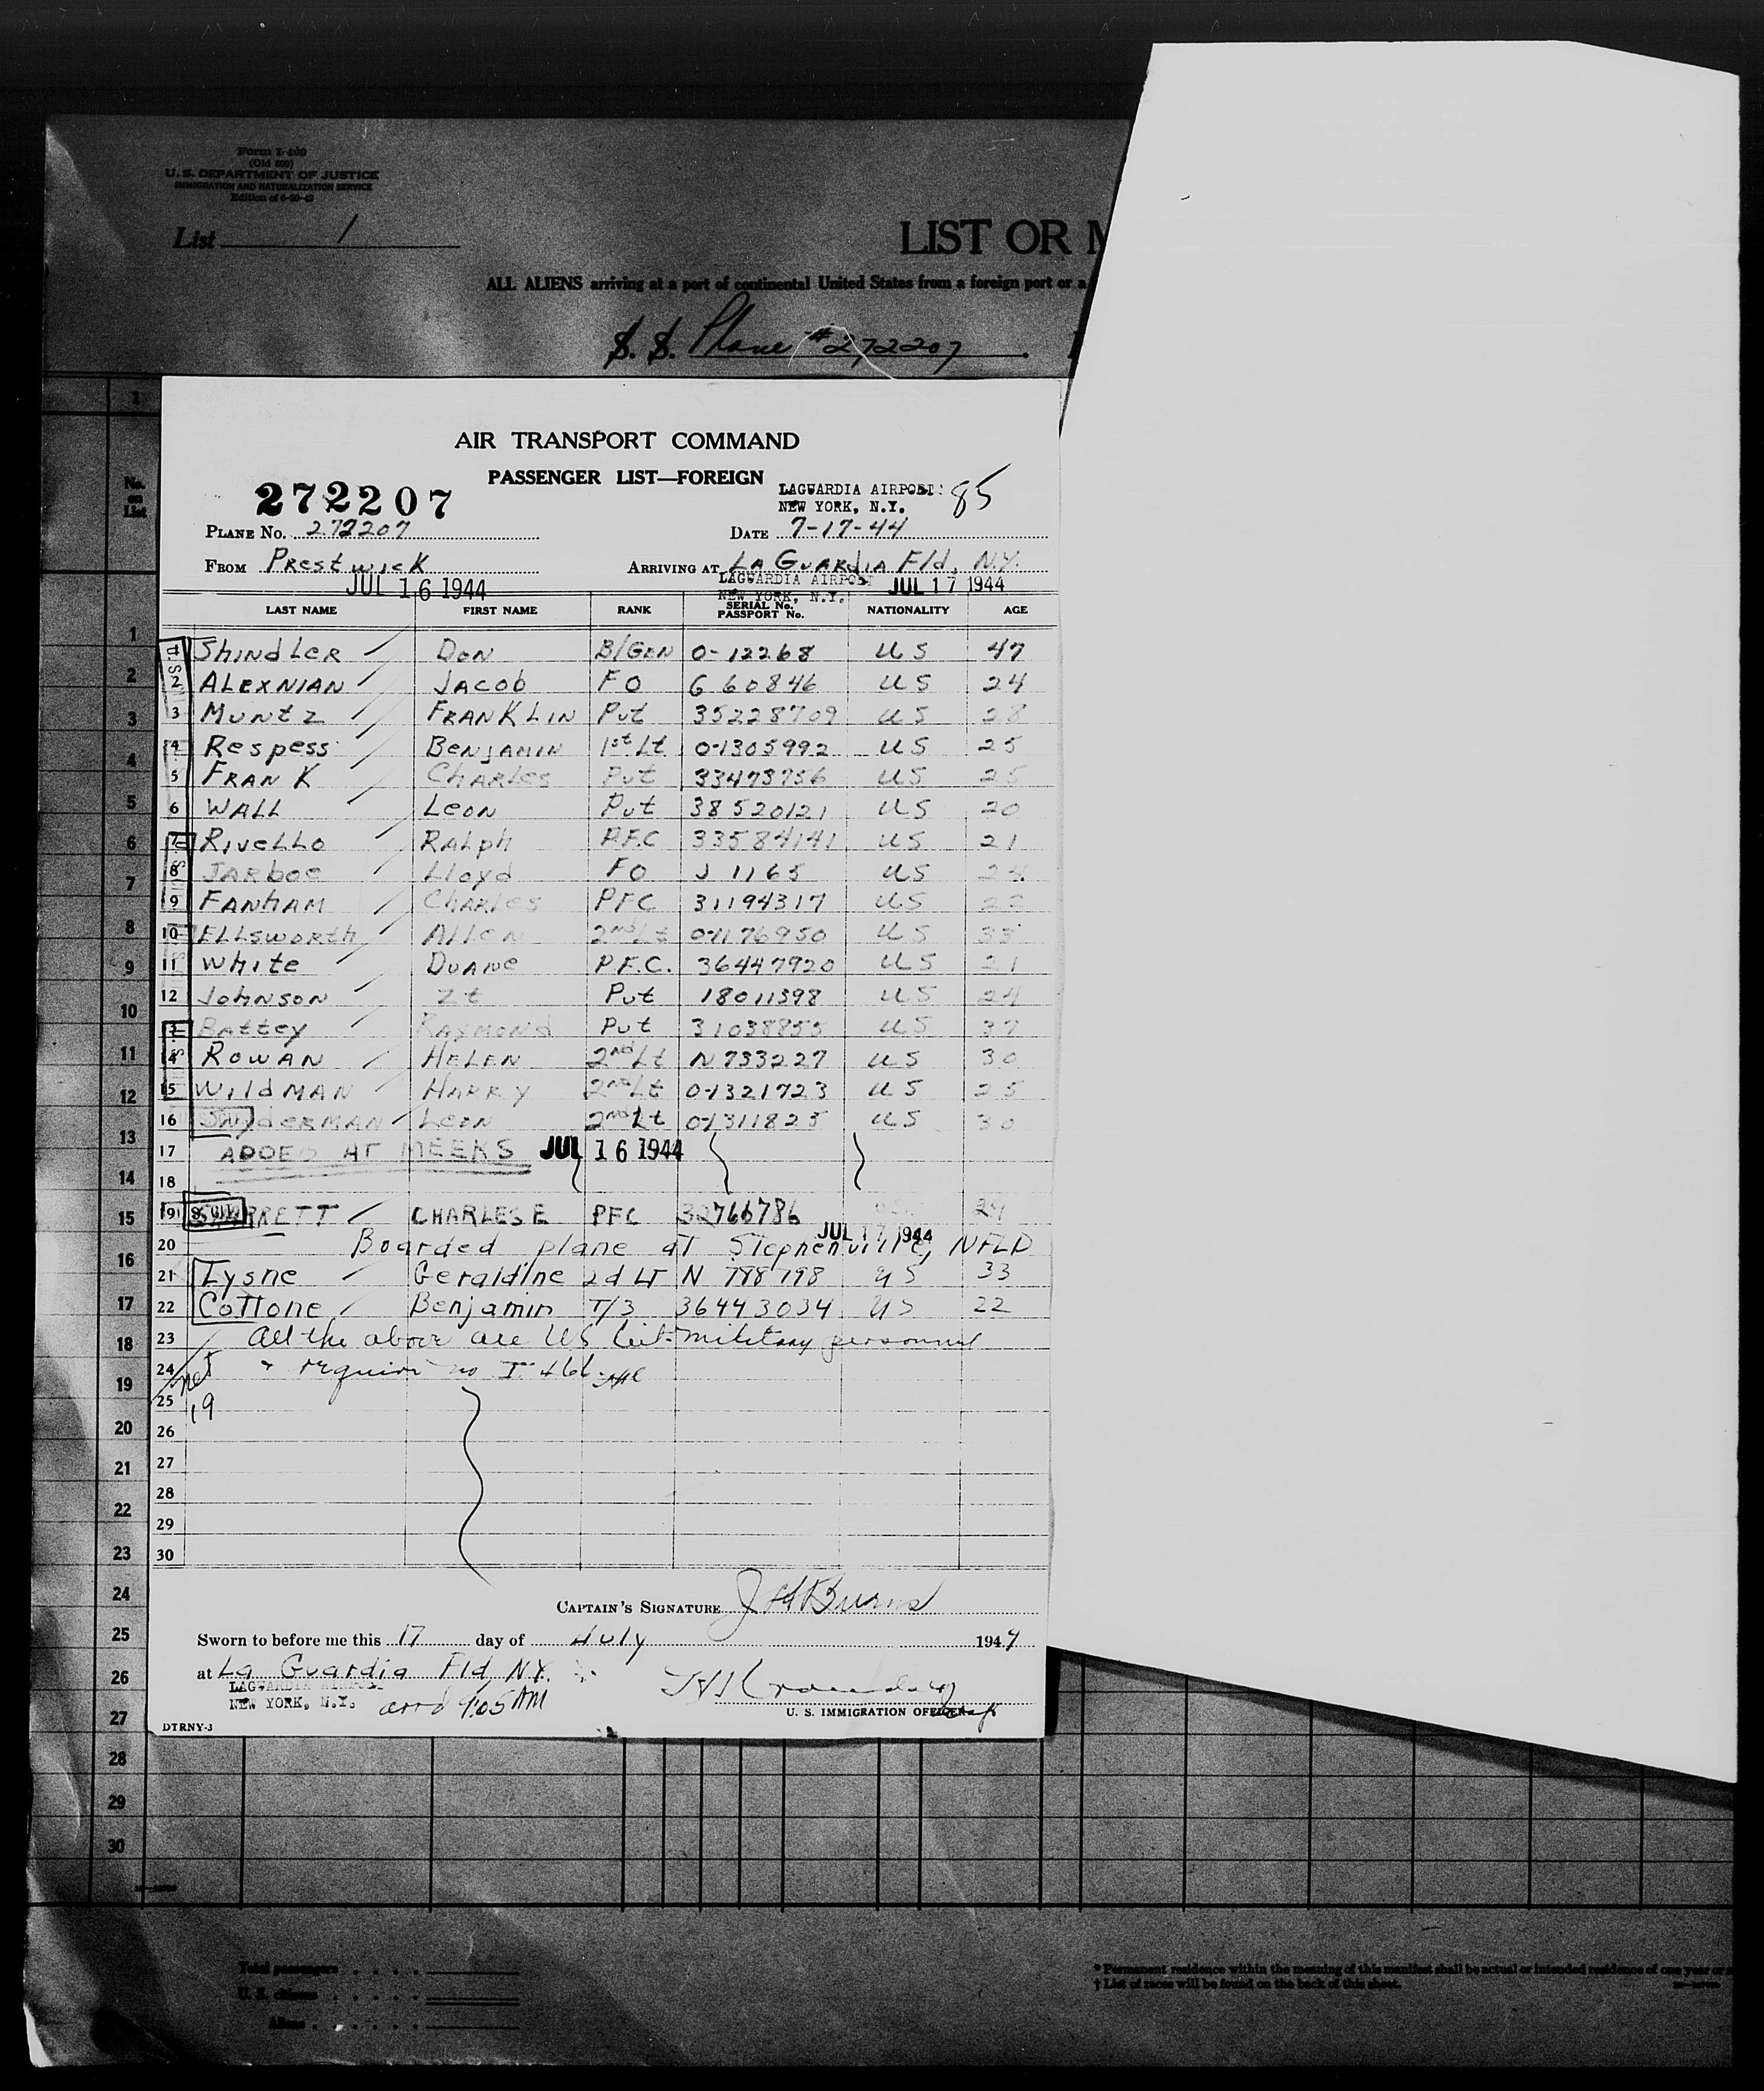 Form I-400
(Old 500)
U. S. DEPARTMENT OF JUSTICE
IMMIGRATION AND NATURALIZATION SERVICE
Edition of 6-20-42
List 1
LIST OR
ALL ALIENS arriving at a port of continental United States from a foreign port or a
S. S. Plane #272207
No. on List
AIR TRANSPORT COMMAND
PASSENGER LIST—FOREIGN
272207
LAGUARDIA AIRPORT
NEW YORK, N.Y.
85
PLANE NO. 272207 DATE 7-17-44
FROM Prestwick ARRIVING AT LA GUARDIA Fld, N.Y.
JUL 16 1944 LAGUARDIA AIRPORT NEW YORK, N.Y. JUL 17 1944
LAST NAME FIRST NAME RANK SERIAL No. PASSPORT No. NATIONALITY AGE
SHINDLER DON B/GEN O-12268 US 47
2 ALEXNIAN JACOB FO G 60846 US 24
3 MUNTZ FRANKLIN Pvt 35228709 US 28
4 Respess BENJAMIN 1st Lt 0-1305992 US 25
5 FRANK CHARLES Pvt 33473756 US 25
6 WALL LEON Pvt 38520121 US 20
7 RIVELLO RALPH P.F.C 33584141 US 21
8 JARBOE Lloyd FO J 1165 US 24
9 FANHAM CHARLES PFC 31194317 US 22
10 ELLSWORTH ALLEN 2nd Lt 0-1176950 US 33
11 White DUANE P.F.C. 36447920 US 21
12 JOHNSON Zt Pvt 18011398 US 24
13 BATTEY RAYMOND Pvt 31038855 US 37
14 ROWAN HELEN 2nd Lt N733227 US 30
15 WILDMAN HARRY 2nd Lt 0-1321723 US 25
16 SNYDERMAN LEON 2nd Lt 0-1311825 US 30
17 ADDED AT MEEKS JUL 16 1944
18
19 CHARLES E PFC 32766786 24
JUL 17 1944
20 Boarded plane at Stephenville, NFLD
21 Tysne Geraldine 2d LT N 788798 US 33
22 Cottone Benjamin T/3 36443034 US 22
23 All the above are US Cit-military personnel
24 & require no I-466
25 19
26
27
28
29
30
CAPTAIN'S SIGNATURE J H Burns
Sworn to before me this 17 day of July 1944
at La Guardia Fld NY.
LAGUARDIA AIRPORT
NEW YORK, N.Y.
arrd 9:05 AM
U. S. IMMIGRATION OFFICER
DTRNY-3
1
1
2
3
4
5
6
7
8
9
10
11
12
13
14
15
16
17
18
19
20
21
22
23
24
25
26
27
28
29
30
Total passengers
U. S. citizens
Aliens
* Permanent residence within the meaning of this manifest shall be actual or intended residence of one year or
† List of races will be found on the back of this sheet.